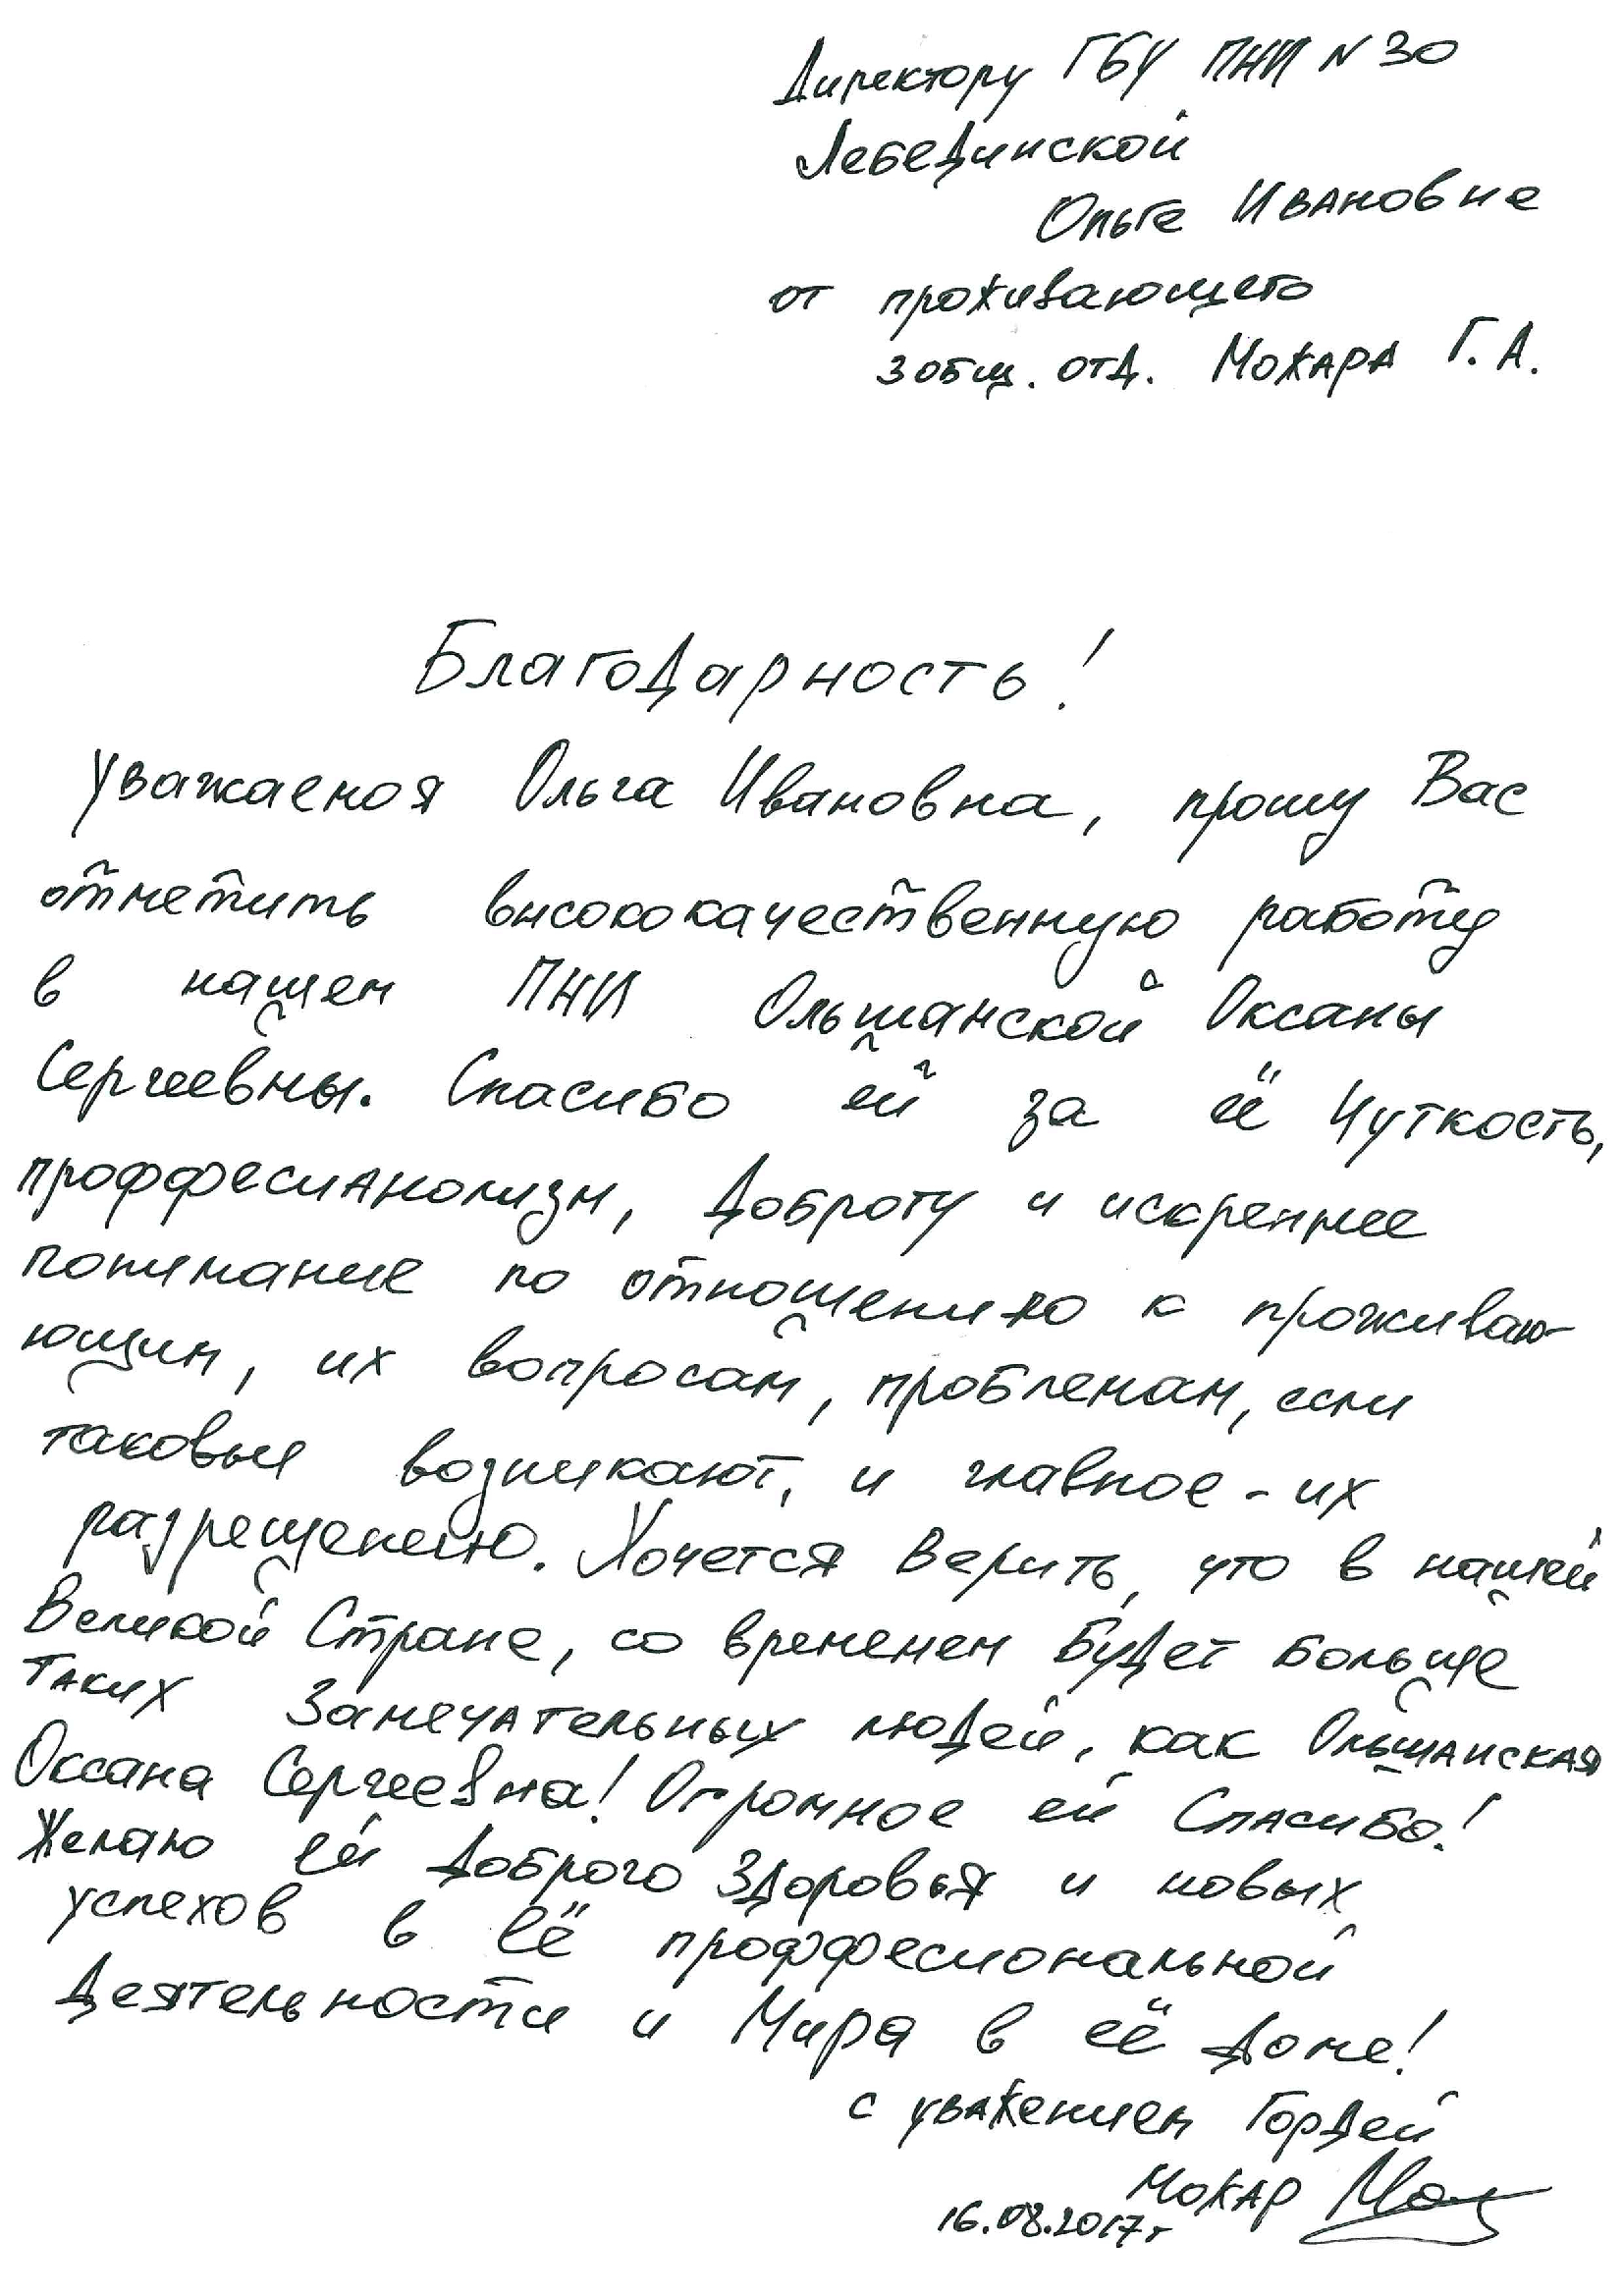 Директору ГБУ ПНИ N 30
Лебединской
Ольге Ивановне
от проживающего
3 общ. отд. Можара Г. А.
Благодарность!
Уважаемая Ольга Ивановна, прошу Вас
отметить высококачественную работу
в нашем ПНИ Ольшанской Оксаны
Сергеевны. Спасибо ей за её Чуткость,
проффесианолизм, Доброту и искреннее
понимание по отношению к проживаю-
ющим, их вопросам, проблемам, если
таковые возникают, и главное - их
разрешению. Хочется верить, что в нашей
Великой Стране, со временем будет больше
таких Замечательных людей, как Ольшанская
Оксана Сергеевна! Огромное ей Спасибо!
Желаю ей Доброго Здоровья и новых
успехов в её проффесиональной
Деятельности и Мира в её Доме!
с уважением Гордей
Можар
16.08.2017г